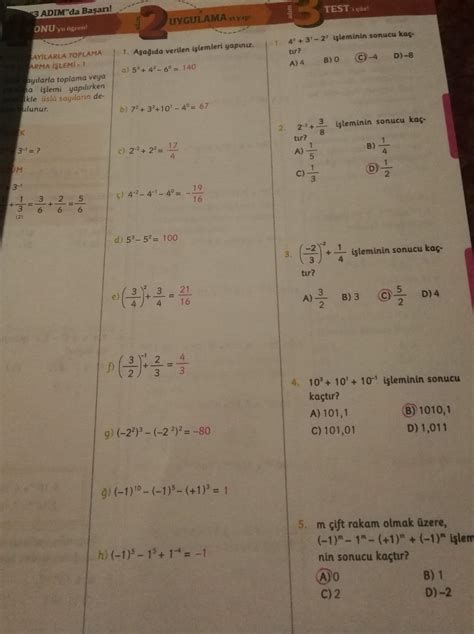 3 ADIM"da Başarı!
ONU
yu öğren!
SAYILARLA TOPLAMA
ARMA İŞLEMİ - 1
sayılarla toplama veya
işlemi yapılırken
üslü sayıların de-
bulunur.
K
3⁻¹ = ?
ÜM
3⁻¹
+ 1/3 = 3/6 + 2/6 = 5/6
(2)
adım
2
UYGULAMA
yı yap
1. Aşağıda verilen işlemleri yapınız.
a) 5³ + 4² – 6⁰ = 140
b) 7² + 3² + 10¹ – 4⁰ = 67
c) 2⁻² + 2² = 17/4
ç) 4⁻² – 4⁻¹ – 4⁰ = –19/16
d) 5³ – 5² = 100
e) (3/4)² + 3/4 = 21/16
f) (3/2)⁻¹ + 2/3 = 4/3
g) (–2²)³ – (–2²)² = –80
ğ) (–1)¹⁰ – (–1)⁵ – (+1)³ = 1
h) (–1)⁵ – 1⁵ + 1⁻⁴ = –1
adım
3
TEST
i çöz!
1. 4⁰ + 3¹ – 2³ işleminin sonucu kaç-
tır?
A) 4 B) 0 C) –4 D) –8
2. 2⁻³ + 3/8 işleminin sonucu kaç-
tır?
A) 1/5 B) 1/4
C) 1/3 D) 1/2
3. (–2/3)⁻² + 1/4 işleminin sonucu kaç-
tır?
A) 3/2 B) 3 C) 5/2 D) 4
4. 10³ + 10¹ + 10⁻¹ işleminin sonucu
kaçtır?
A) 101,1 B) 1010,1
C) 101,01 D) 1,011
5. m çift rakam olmak üzere,
(–1)ᵐ – 1ᵐ – (+1)ᵐ + (–1)ᵐ işlem
nin sonucu kaçtır?
A) 0 B) 1
C) 2 D) –2